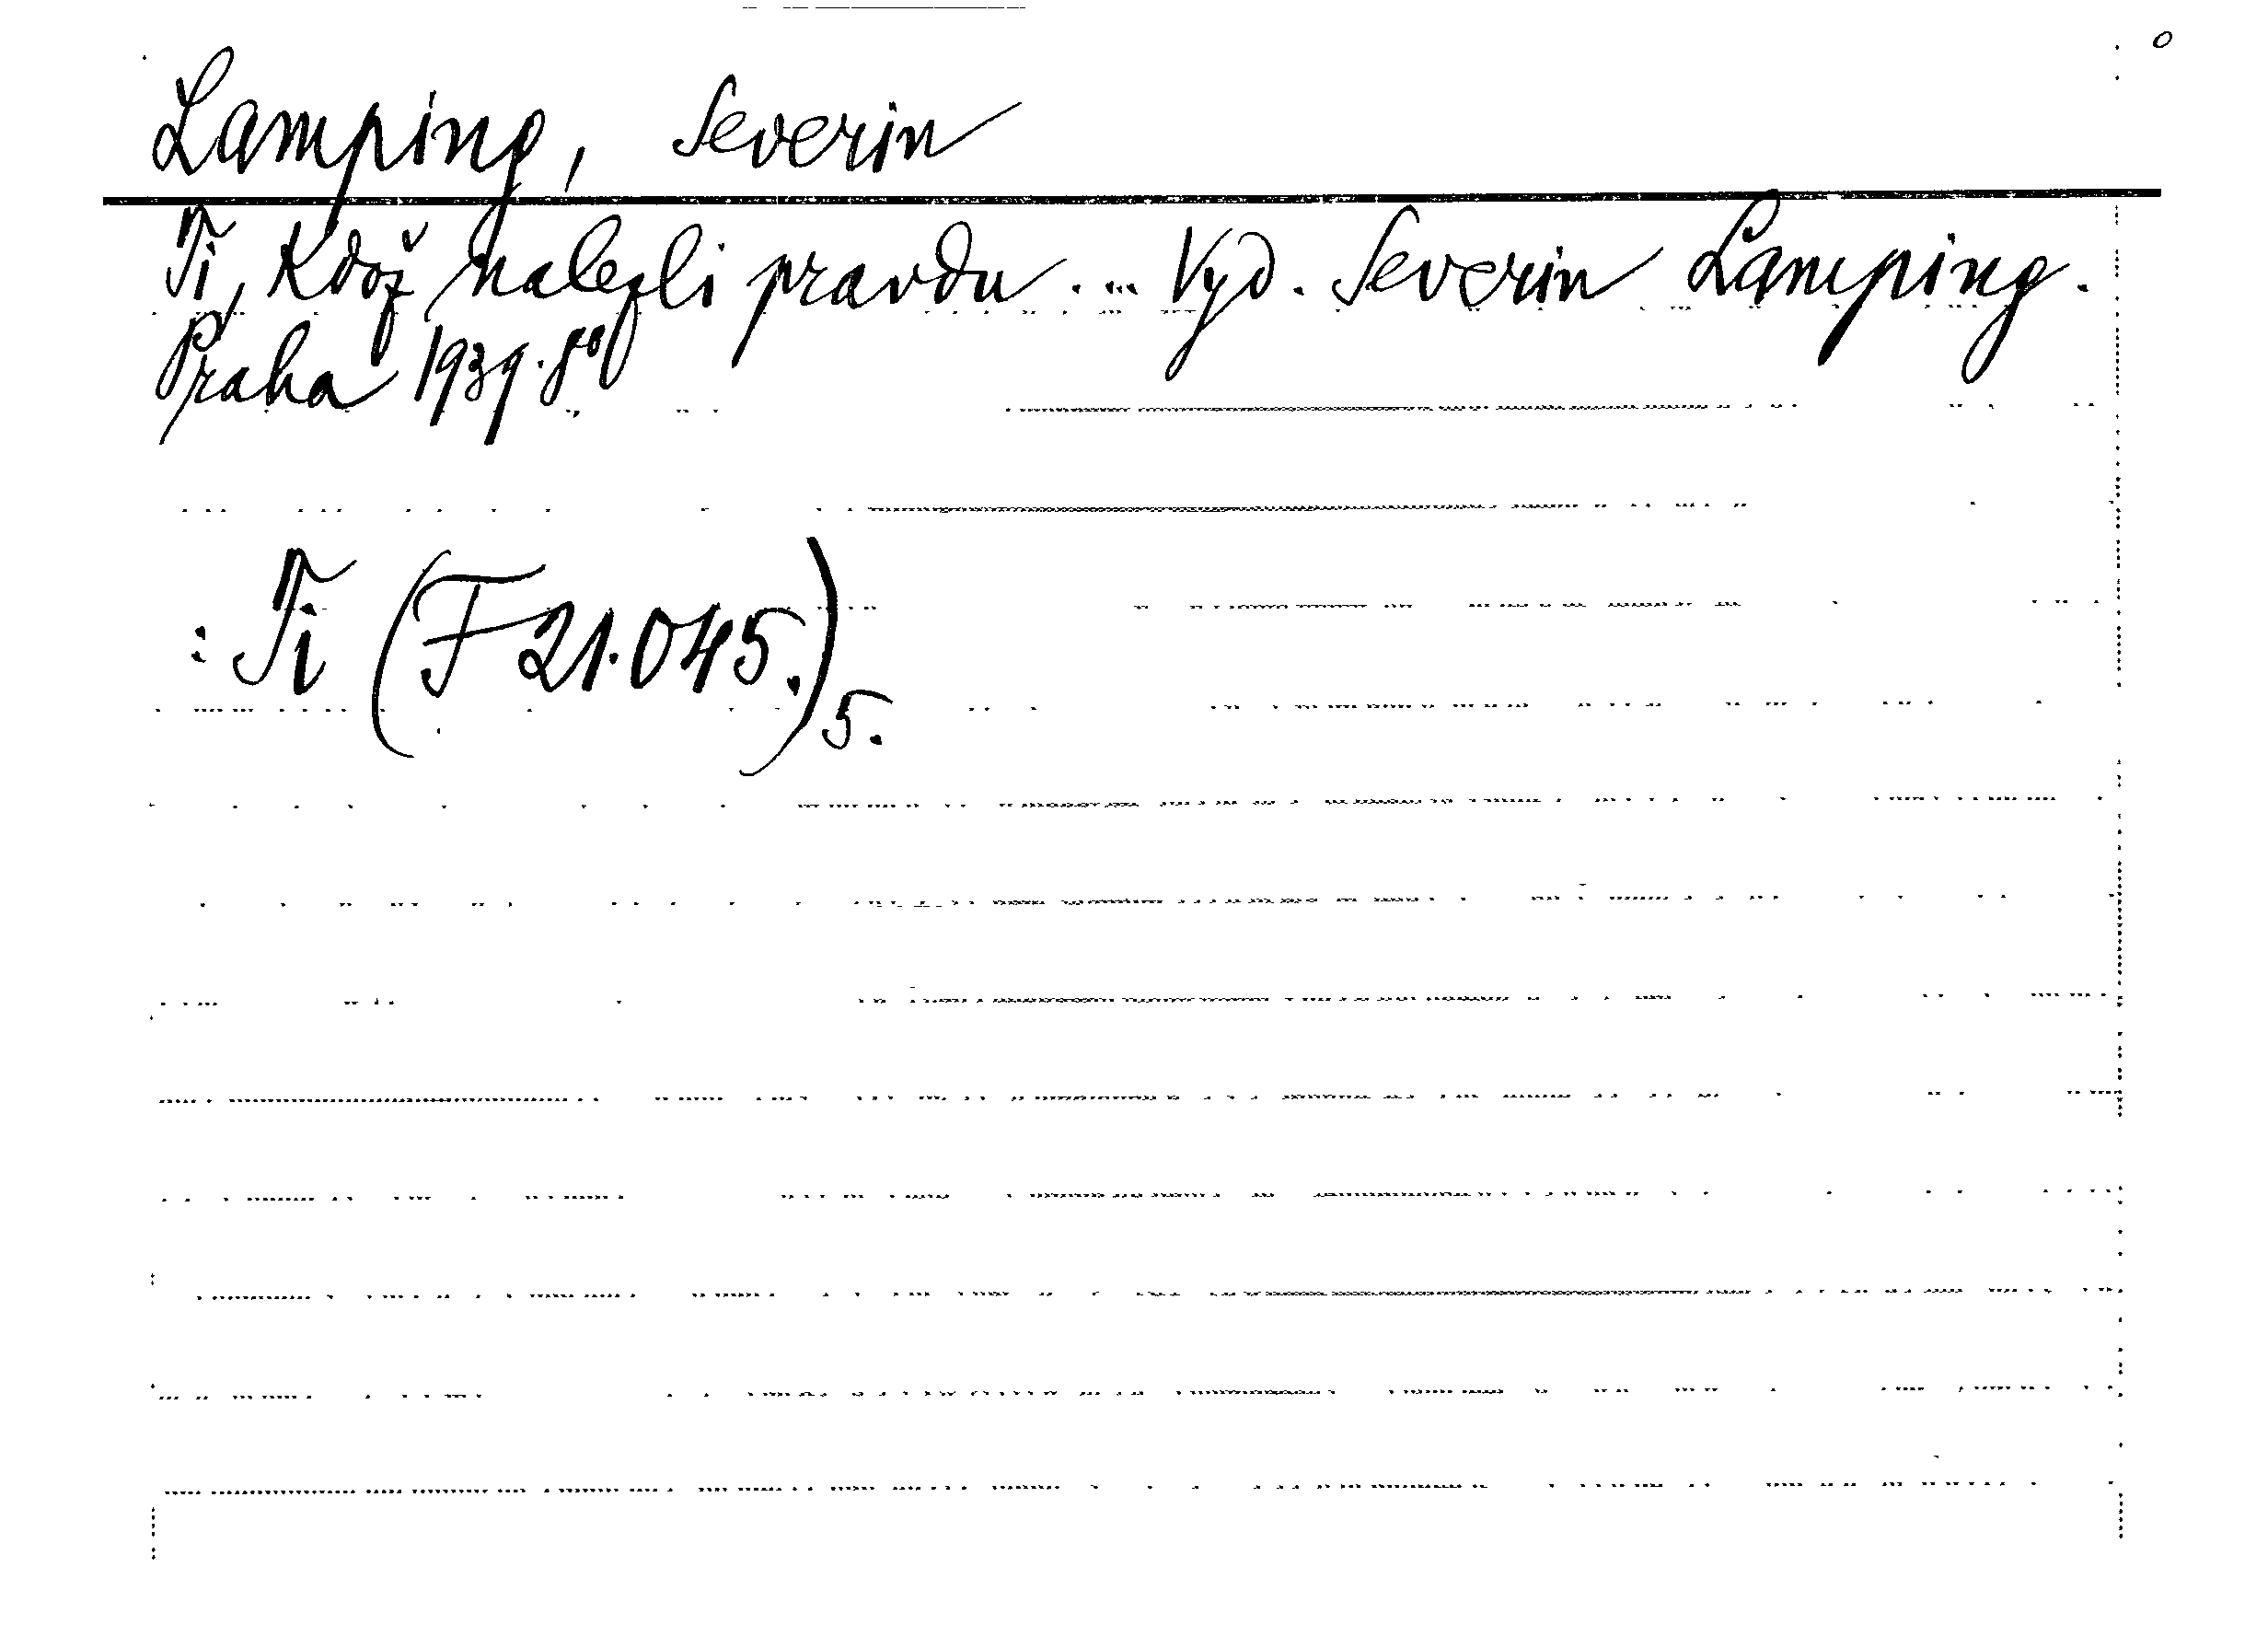 Lamping, Severin
Ti, kdož nalezli pravdu .... Vyd. Severin Lamping.
Praha 1939. 8°
: Ti (F 21.045.) 5.